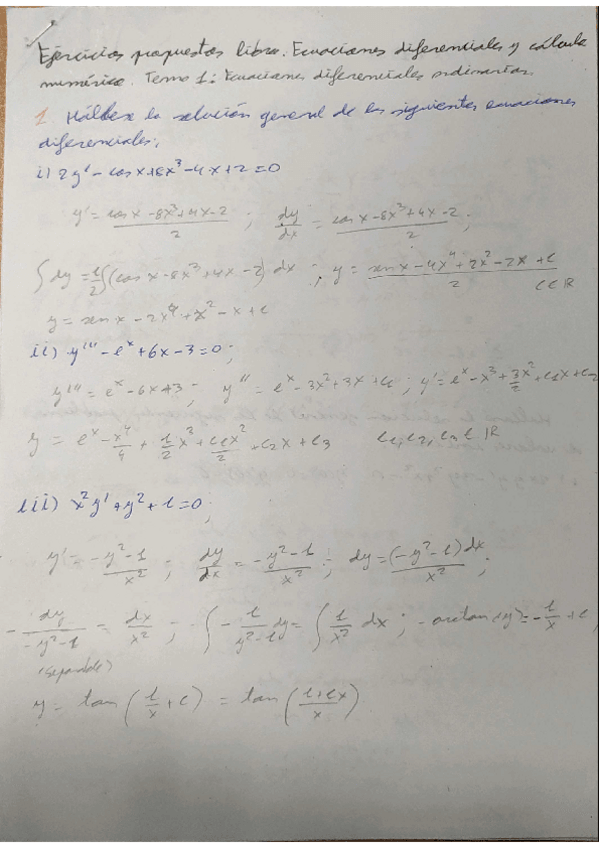 Ejercicios propuestos libro. Ecuaciones diferenciales y cálculo
numérico. Tema 1: Ecuaciones diferenciales ordinarias.
1. Hállese la solución general de las siguientes ecuaciones
diferenciales;
i) 2y' - cos x + 8x³ - 4x + 2 = 0
y' = (cos x - 8x³ + 4x - 2)/2 ; dy/dx = (cos x - 8x³ + 4x - 2)/2 ;
∫ dy = 1/2 ∫ (cos x - 8x³ + 4x - 2) dx ; y = (sen x - 4x⁴ + 2x² - 2x + c)/2 c ∈ ℝ
y = sen x - 2x⁴ + x² - x + c
ii) y''' - eˣ + 6x - 3 = 0 ;
y''' = eˣ - 6x + 3 ; y'' = eˣ - 3x² + 3x + c₁ ; y' = eˣ - x³ + 3/2 x² + c₁x + c₂
y = eˣ - x⁴/4 + 1/2 x³ + c₁x²/2 + c₂x + c₃ c₁, c₂, c₃ ∈ ℝ
iii) x²y' + y² + 1 = 0 ;
y' = (-y² - 1)/x² ; dy/dx = (-y² - 1)/x² ; dy = (-y² - 1) dx/x² ;
- dy/(-y² - 1) = dx/x² ; - ∫ - 1/(y² - 1) dy = ∫ 1/x² dx ; - arctan (y) = - 1/x + c ,
(separable)
y = tan (1/x + c) = tan ((1 + cx)/x)